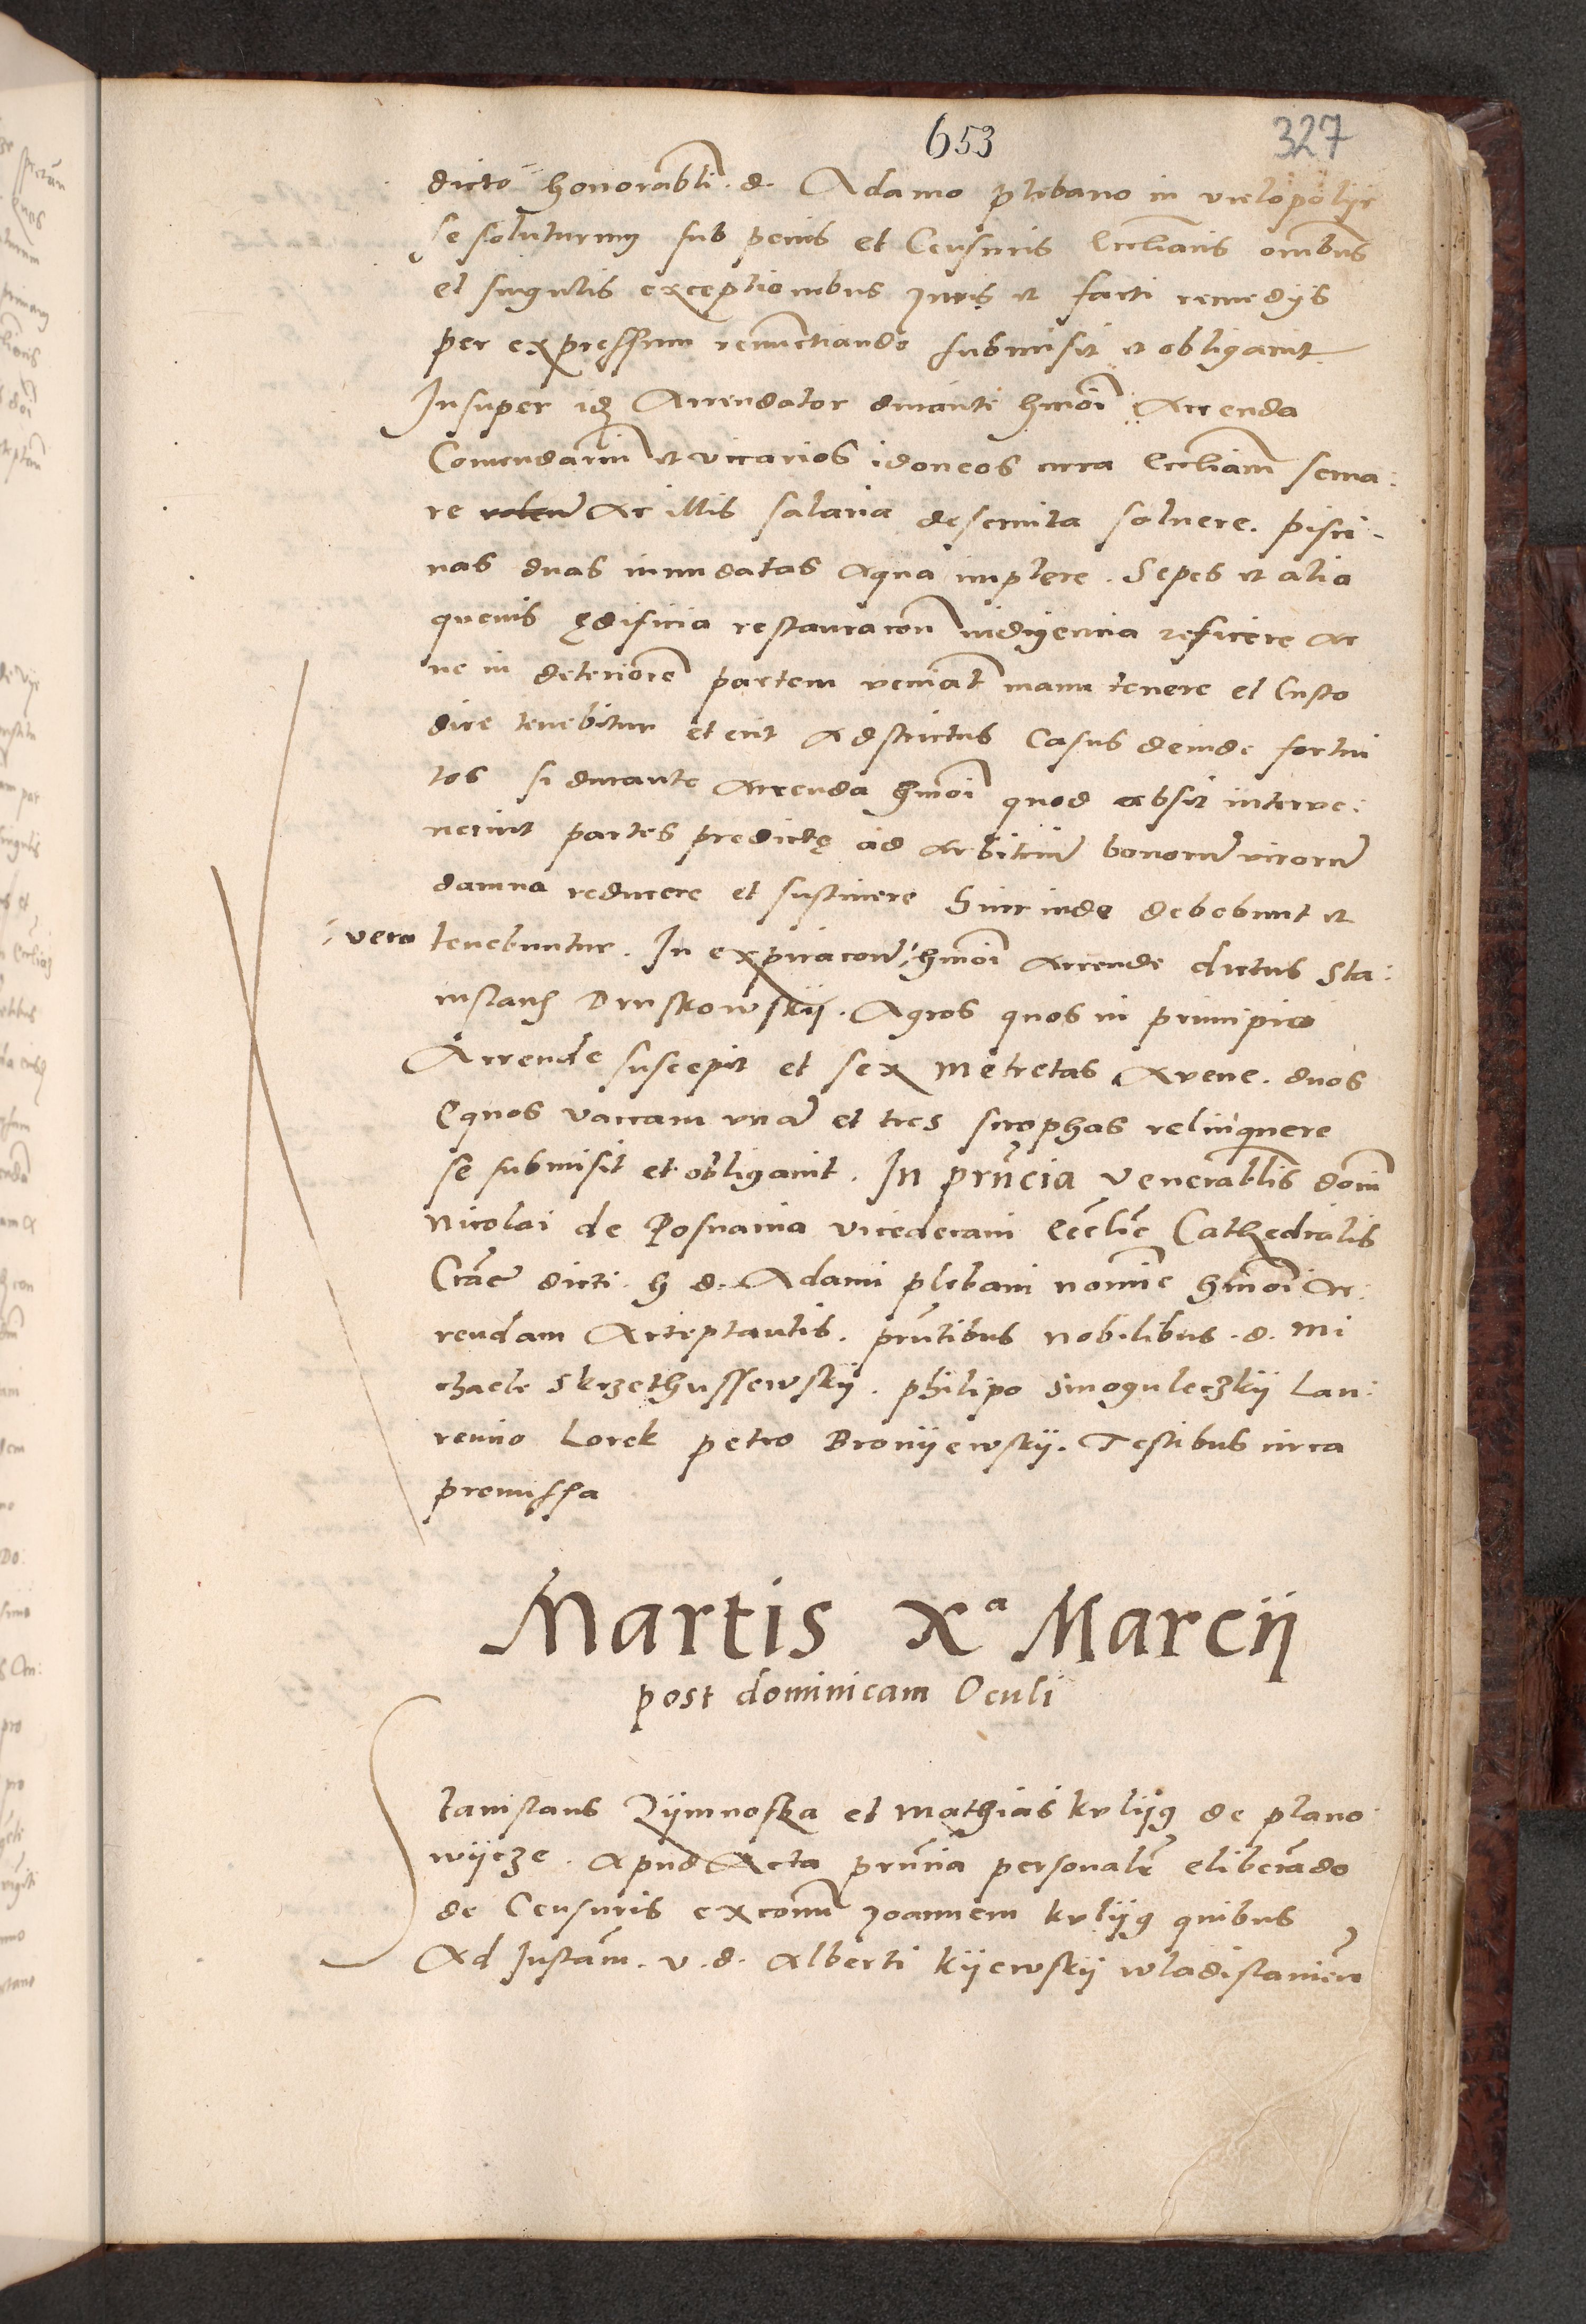 653 327
dicto honorabli. d. Adamo plebano in vielopolije
se soluturum sub penis et Censuris Eccliaris omnibus
et singulis exceptionibus Juris et facti remedijs
per expressum renunctiando submisit et obligavit
Insuper idem Arrendator durante hmoi Arrenda
Comendarium et vicarios idoneos circa Eccliam serva:
re volens Ac illis salaria deservita solvere. pisci-
nas duas inundatas aqua implere. Sepes et alia
quevis ędificia restauracon indigencia reficere ac
ne in deteriorē partem veniant manu tenere et Custo
dire tenebitur et erit Adstrictus Casus deinde fortui
tos si durante Arrenda hmoi quod absit interve:
nerint partes predictę ad Arbitrium bonorum virorum
damna reducere et sustinere hinc inde debebunt et
vero tenebuntur. In expiracone hmoi Arrende dictus Sta:
nislaus Druskowskij. Agros quos in principio
Arrende suscepit et sex metretas Avene. duos
Equos vaccam unā et tres scrophas relinquere
se submisit et obligavit. In prn̄cia venerablis domi
Nicolai de Posnania vicedecani Ecclie Cathedralis
Crac dicti. h d. Adami plebani nomie hmoi Ar:
rendam Acceptantis. prn̄tibus nobilibus. d. Mi
chaele Skrzethussewskij. philipo Smoguleczkij Lau:
rencio Lorek petro Bronijewskij. Testibus circa
premissa
Martis Xa Marcij
post dominicam Oculi
Stanislaus Zijmnoska et Mathias kulijg de plano
wijcze. Apud Acta prn̄cia personalr eliberādo
de Censuris excom Joannem kulijg quibus
Ad Instam. v. d. Alberti kijewskij wladislavien